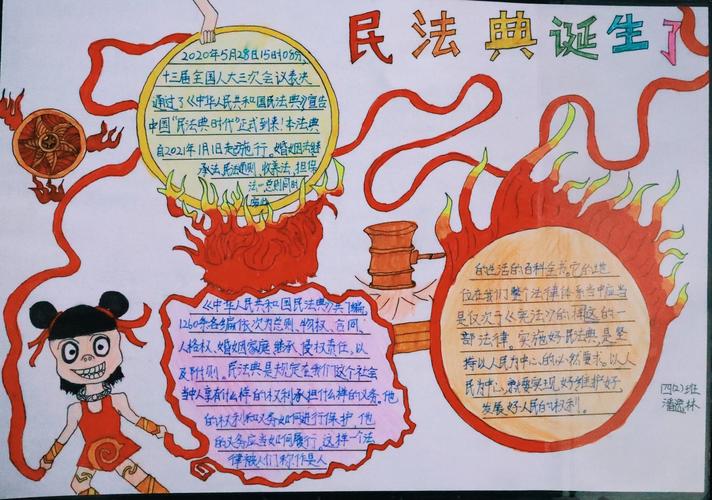 民法典诞生了
2020年5月28日15时08分,
十三届全国人大三次会议表决
通过了《中华人民共和国民法典》宣告
中国“民法典时代”正式到来!本法典
自2021年1月1日起施行。婚姻法继
承法,民法通则,收养法,担保
法
总则同时
废止
《中华人民共和国民法典》共7编,
1260条各编依次为总则、物权、合同、
人格权、婚姻家庭继承、侵权责任,以
及附则。民法典是规定在我们这个社会
当中人享有什么样的权利承担什么样的义务。他
的权利和义务如何进行保护,他
的义务应当如何履行,这样一个法
律被人们称作是人
的生活的百科全书。它的地
位在我们整个法律体系当中应当
是仅次于《宪法》的
的一
部法律。实施好民法典,是坚
持以人民为中心的必然要求。以人
民为中心,就要实现好维护好
发展好人民的权利。
四(2)班
潘逸林